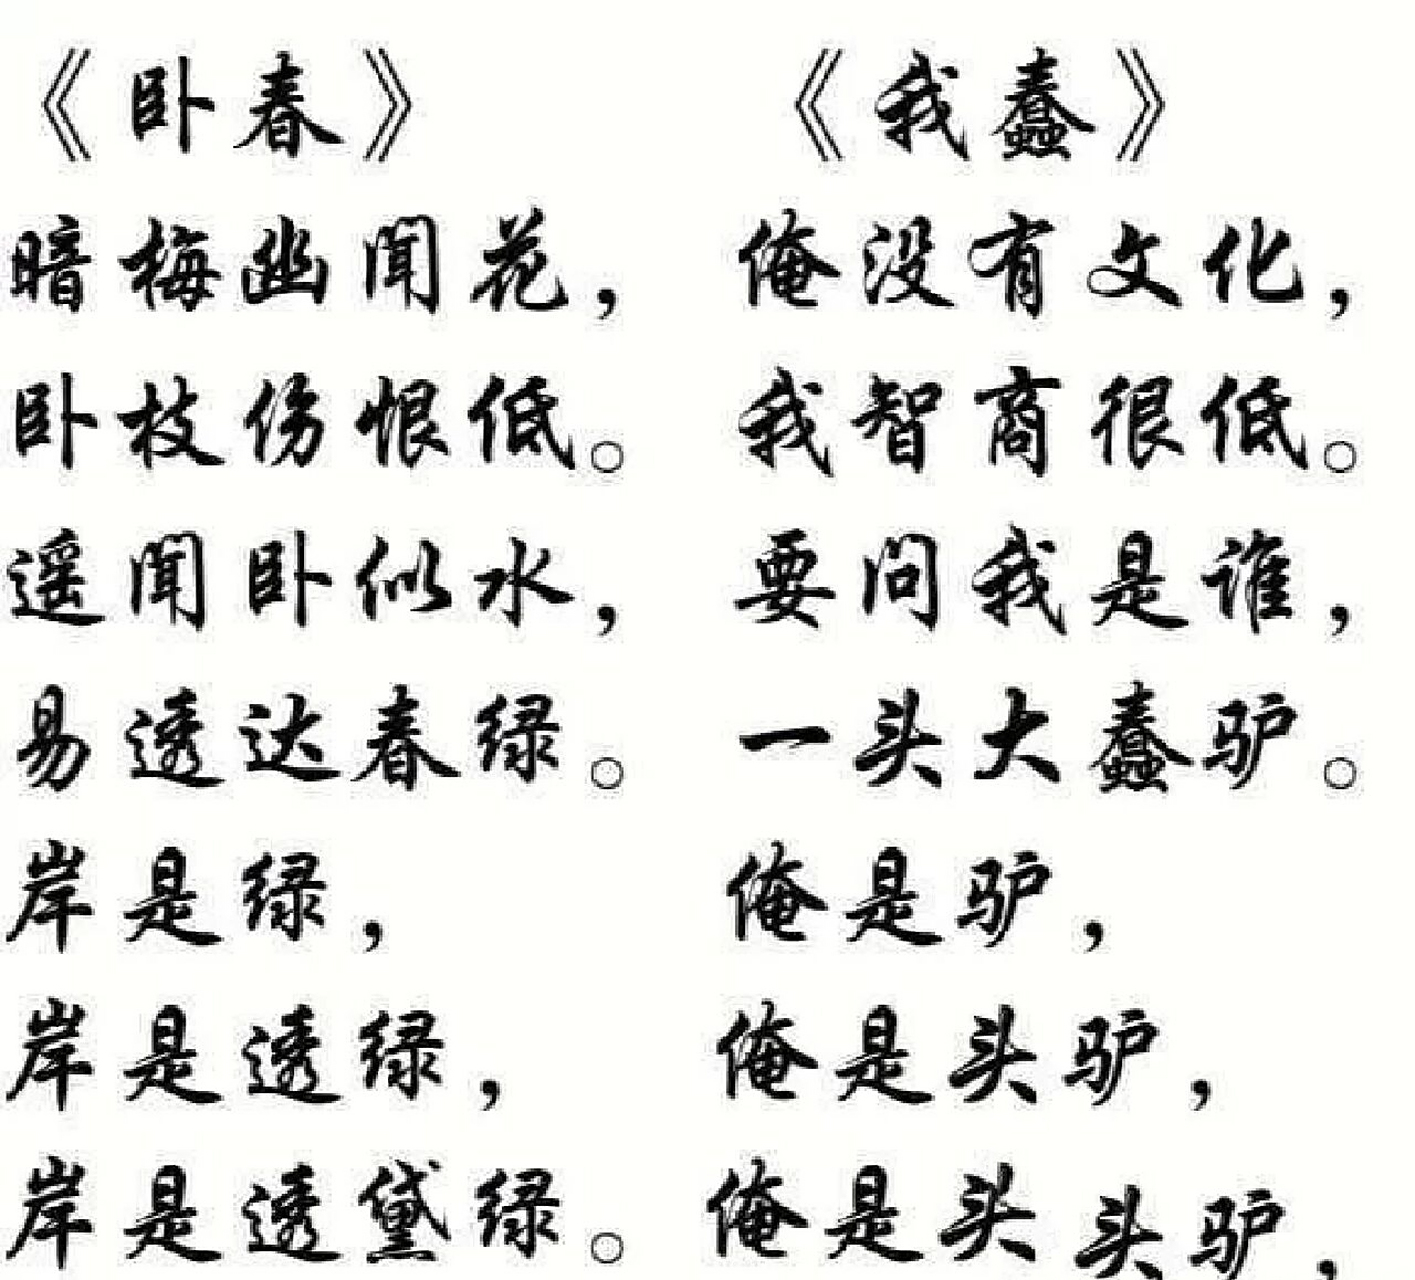 《卧春》
暗梅幽闻花，
卧枝伤恨低。
遥闻卧似水，
易透达春绿。
岸是绿，
岸是透绿，
岸是透黛绿。
《我蠢》
俺没有文化，
我智商很低。
要问我是谁，
一头大蠢驴。
俺是驴，
俺是头驴，
俺是头头驴，